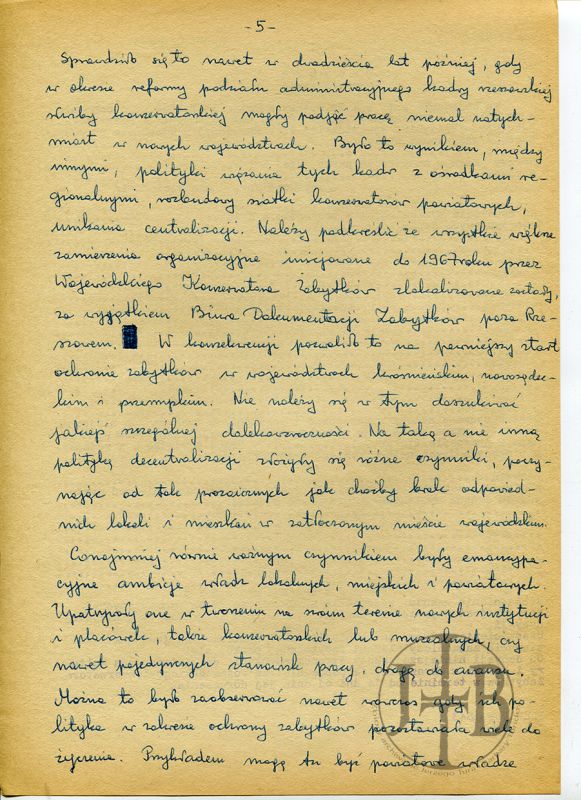 - 5 -
Sprawdziło się to nawet w dwadzieścia lat później, gdy
w okresie reformy podziału administracyjnego kadry rzeszowskiej
służby konserwatorskiej mogły podjąć pracę niemal natych-
miast w nowych województwach. Było to wynikiem, między
innymi, polityki wiązania tych kadr z ośrodkami re-
gionalnymi, rozbudowy siatki konserwatorów powiatowych,
unikania centralizacji. Należy podkreślić że wszystkie większe
zamierzenia organizacyjne inicjowane do 1967 roku przez
Wojewódzkiego Konserwatora Zabytków zlokalizowane zostały,
za wyjątkiem Biura Dokumentacji Zabytków poza Rze-
szowem. W konsekwencji pozwoliło to na pewniejszy start
ochronie zabytków w województwach krośnieńskim, nowosądec-
kim i przemyskim. Nie należy się w tym doszukiwać
jakiejś szczególnej dalekowzroczności. Na taką a nie inną
politykę decentralizacji złożyły się różne czynniki, poczy-
nając od tak prozaicznych jak choćby brak odpowied-
nich lokali i mieszkań w zatłoczonym mieście wojewódzkim.
Conajmniej równie ważnym czynnikiem były emancypa-
cyjne ambicje władz lokalnych, miejskich i powiatowych.
Upatrywały one w tworzeniu na swoim terenie nowych instytucji
i placówek, także konserwatorskich lub muzealnych, czy
nawet pojedynczych stanowisk pracy, drogę do awansu.
Można to było zaobserwować nawet wówczas gdy ich po-
lityka w zakresie ochrony zabytków pozostawiała wiele do
życzenia. Przykładem mogą tu być powiatowe władze